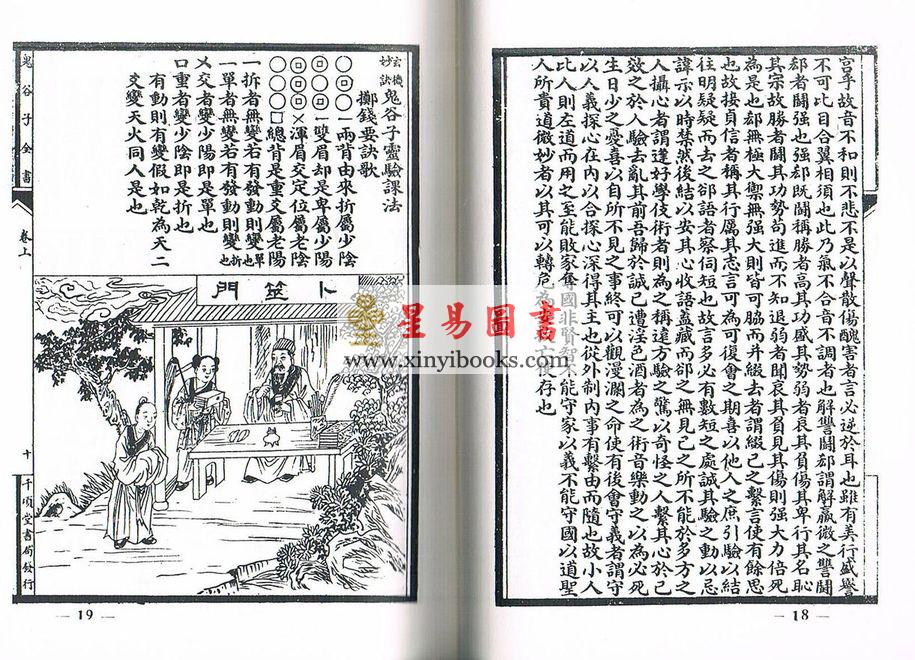 宮乎故音不和則不悲不是以聲散傷醜害者言必逆於耳也雖有美行盛譽
不可比目合翼相須也此乃氣不合音不調者也解讐鬭郄謂解羸微之讐鬭
郄者鬭强也强郄既鬭稱勝者高其功盛其勢弱者哀其負傷其卑行其名恥
其宗故勝者鬭其功勢苟進而不知退弱者聞哀其負見其傷則强大力倍死
為是也郄無極大禦無强大則皆可脇而幷綴去者謂綴己之繫言使有餘思
也故接貞信者稱其行厲其志言可為可復會之期喜以他人之庶引驗以結
往明疑疑而去之卻語者察伺短也故言多必有數短之處誠其驗之動以忌
諱示以時禁然後結以安其心收語蓋藏而卻之無見己之所不能於多方之
人攝心者謂逢好學伎術者則為之稱遠方驗之驚以奇怪之人繫其心於己
效之於人驗去亂其前吾歸於誠己遭淫色酒者為之術音樂動之以為必死
生日少之憂喜以自所不見之事終可以觀漫瀾之命使有後會守義者謂守
以人義探心在內以合探心深得其主也從外制內事有繫由而隨也故小人
比人則左道而用之至能敗家奪國非賢智不能守家以義不能守國以道聖
人所貴道微妙者以其可以轉危為安 存也
— 18 —
玄機妙訣鬼谷子靈驗課法
擲錢要訣歌
一兩背由來折屬少陰
一雙眉却是單屬少陽
乂渾眉交定位屬老陰
口總背是重爻屬老陽
一折者無變若有發動則變單也
一單者無變若有發動則變折也
乂交者變少陽即是單也
口重者變少陰即是折也
有動則有變假如乾為天二
爻變天火同人是也
卜筮門
鬼谷子全書
卷上
十
千頃堂書局發行
— 19 —
星易圖書
www.xinyibooks.com